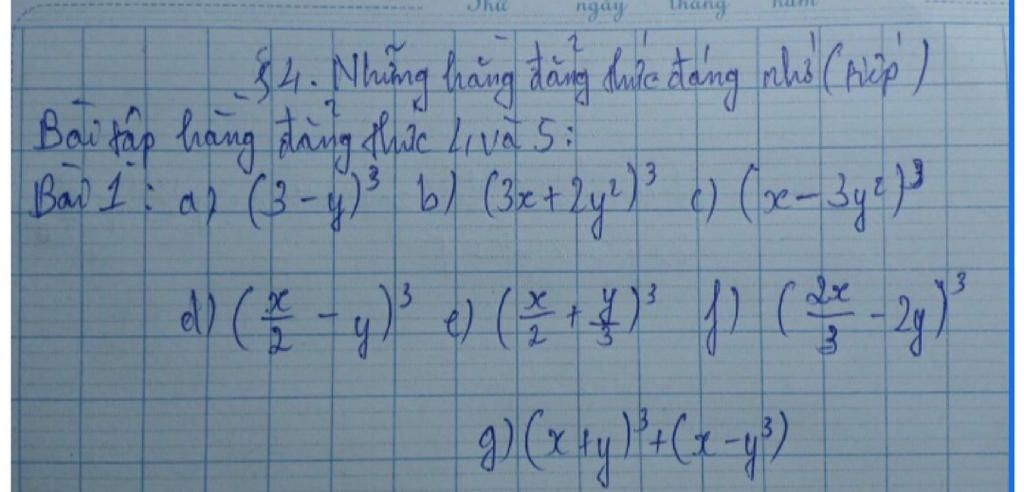 Thứ ngày tháng năm
§4. Những hằng đẳng thức đáng nhớ (tiếp)
Bài tập hằng đẳng thức 4 và 5:
Bài 1: a) (3 - y)³ b) (3x + 2y²)³ c) (x - 3y²)³
d) (x/2 - y)³ e) (x/2 + y/3)³ f) (2x/3 - 2y)³
g) (x + y)³ + (x - y³)